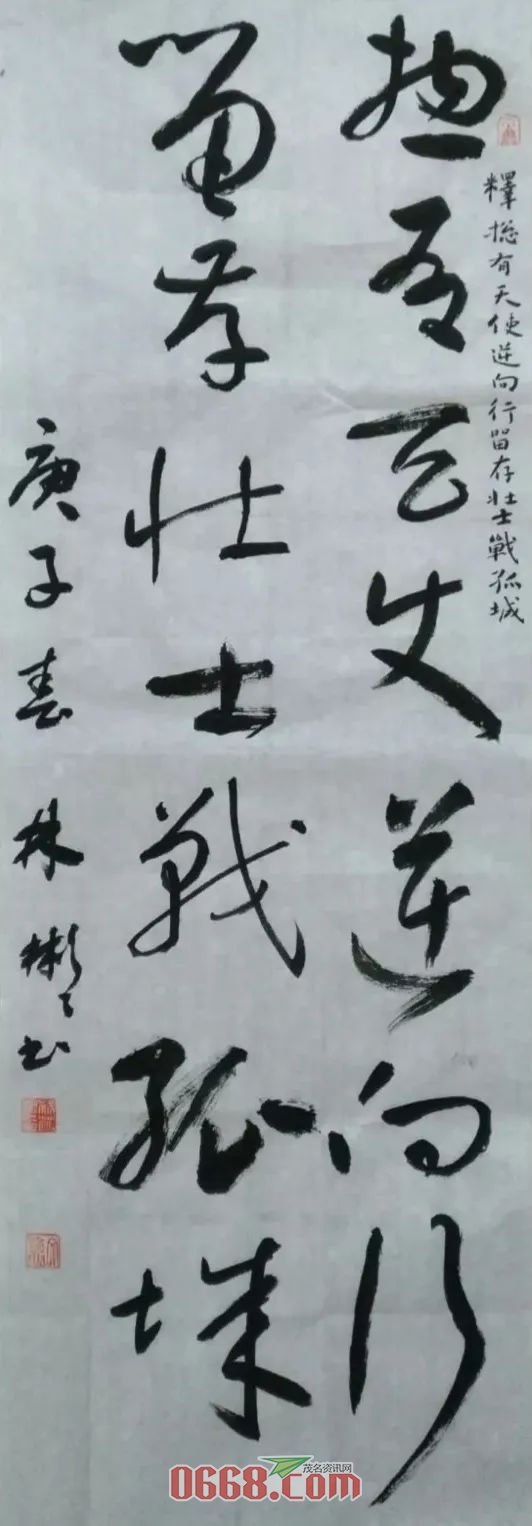 總有天使逆向行
留存壯士戰孤城
釋 總有天使逆向行留存壯士戰孤城
庚子春 林彬彬书
茂名资讯网
0668.com